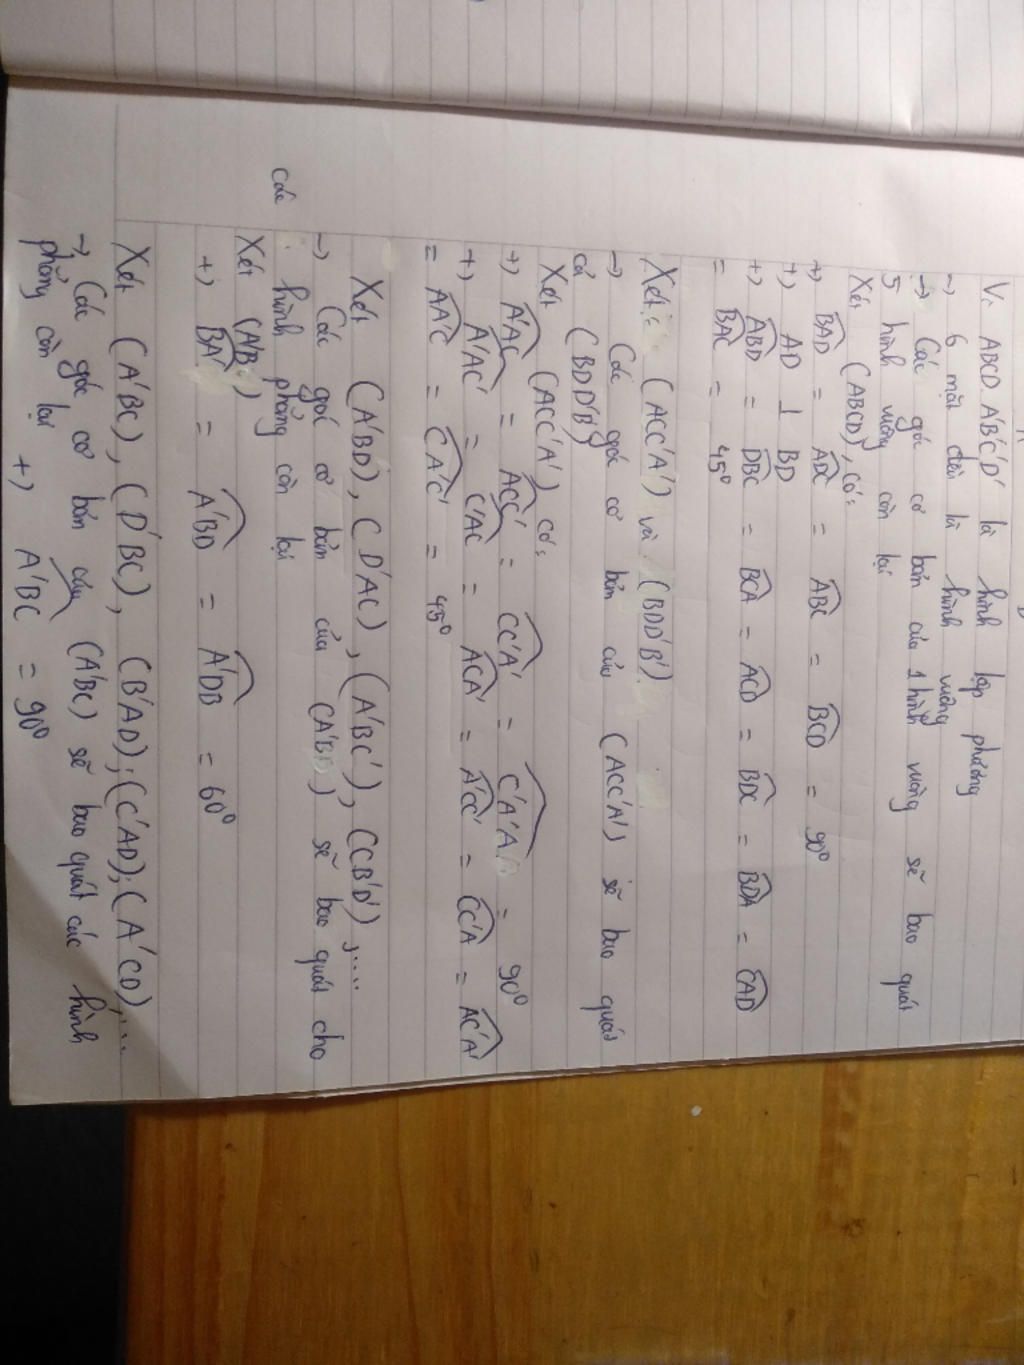 V. ABCD A'B'C'D' là hình lập phương
→ 6 mặt đều là hình vuông
→ Các góc cơ bản của 1 hình vuông sẽ bao quát
5 hình vuông còn lại
Xét (ABCD), có:
+) BAD = ADC = ABC = BCD = 90°
+) AD ⊥ BD
+) ABD = DBC = BCA = ACD = BDC = BDA = CAD
= BAC = 45°
Xét: (ACC'A') và (BDD'B')
→ Các góc cơ bản của (ACC'A') sẽ bao quát
cả (BDD'B')
Xét (ACC'A') có:
+) A'AC = ACC' = CC'A' = C'A'A = 90°
+) A'AC' = C'AC = ACA' = A'CC' = CC'A = AC'A'
= AA'C = CA'C' = 45°
Xét (A'BD), (D'AC), (A'BC'), (CB'D'), ....
→ Các góc cơ bản của (A'BD) sẽ bao quát cho
các hình phẳng còn lại
Xét (A'B
+) BA' = A'BD = A'DB = 60°
Xét (A'BC), (D'BC), (B'AD), (C'AD), (A'CD), ...
→ Các góc cơ bản của (A'BC) sẽ bao quát các hình
phẳng còn lại +) A'BC = 90°